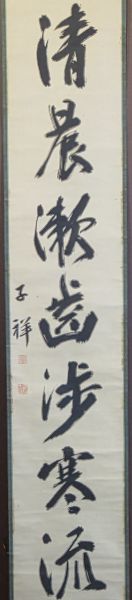 清晨漱齒涉寒流
子祥